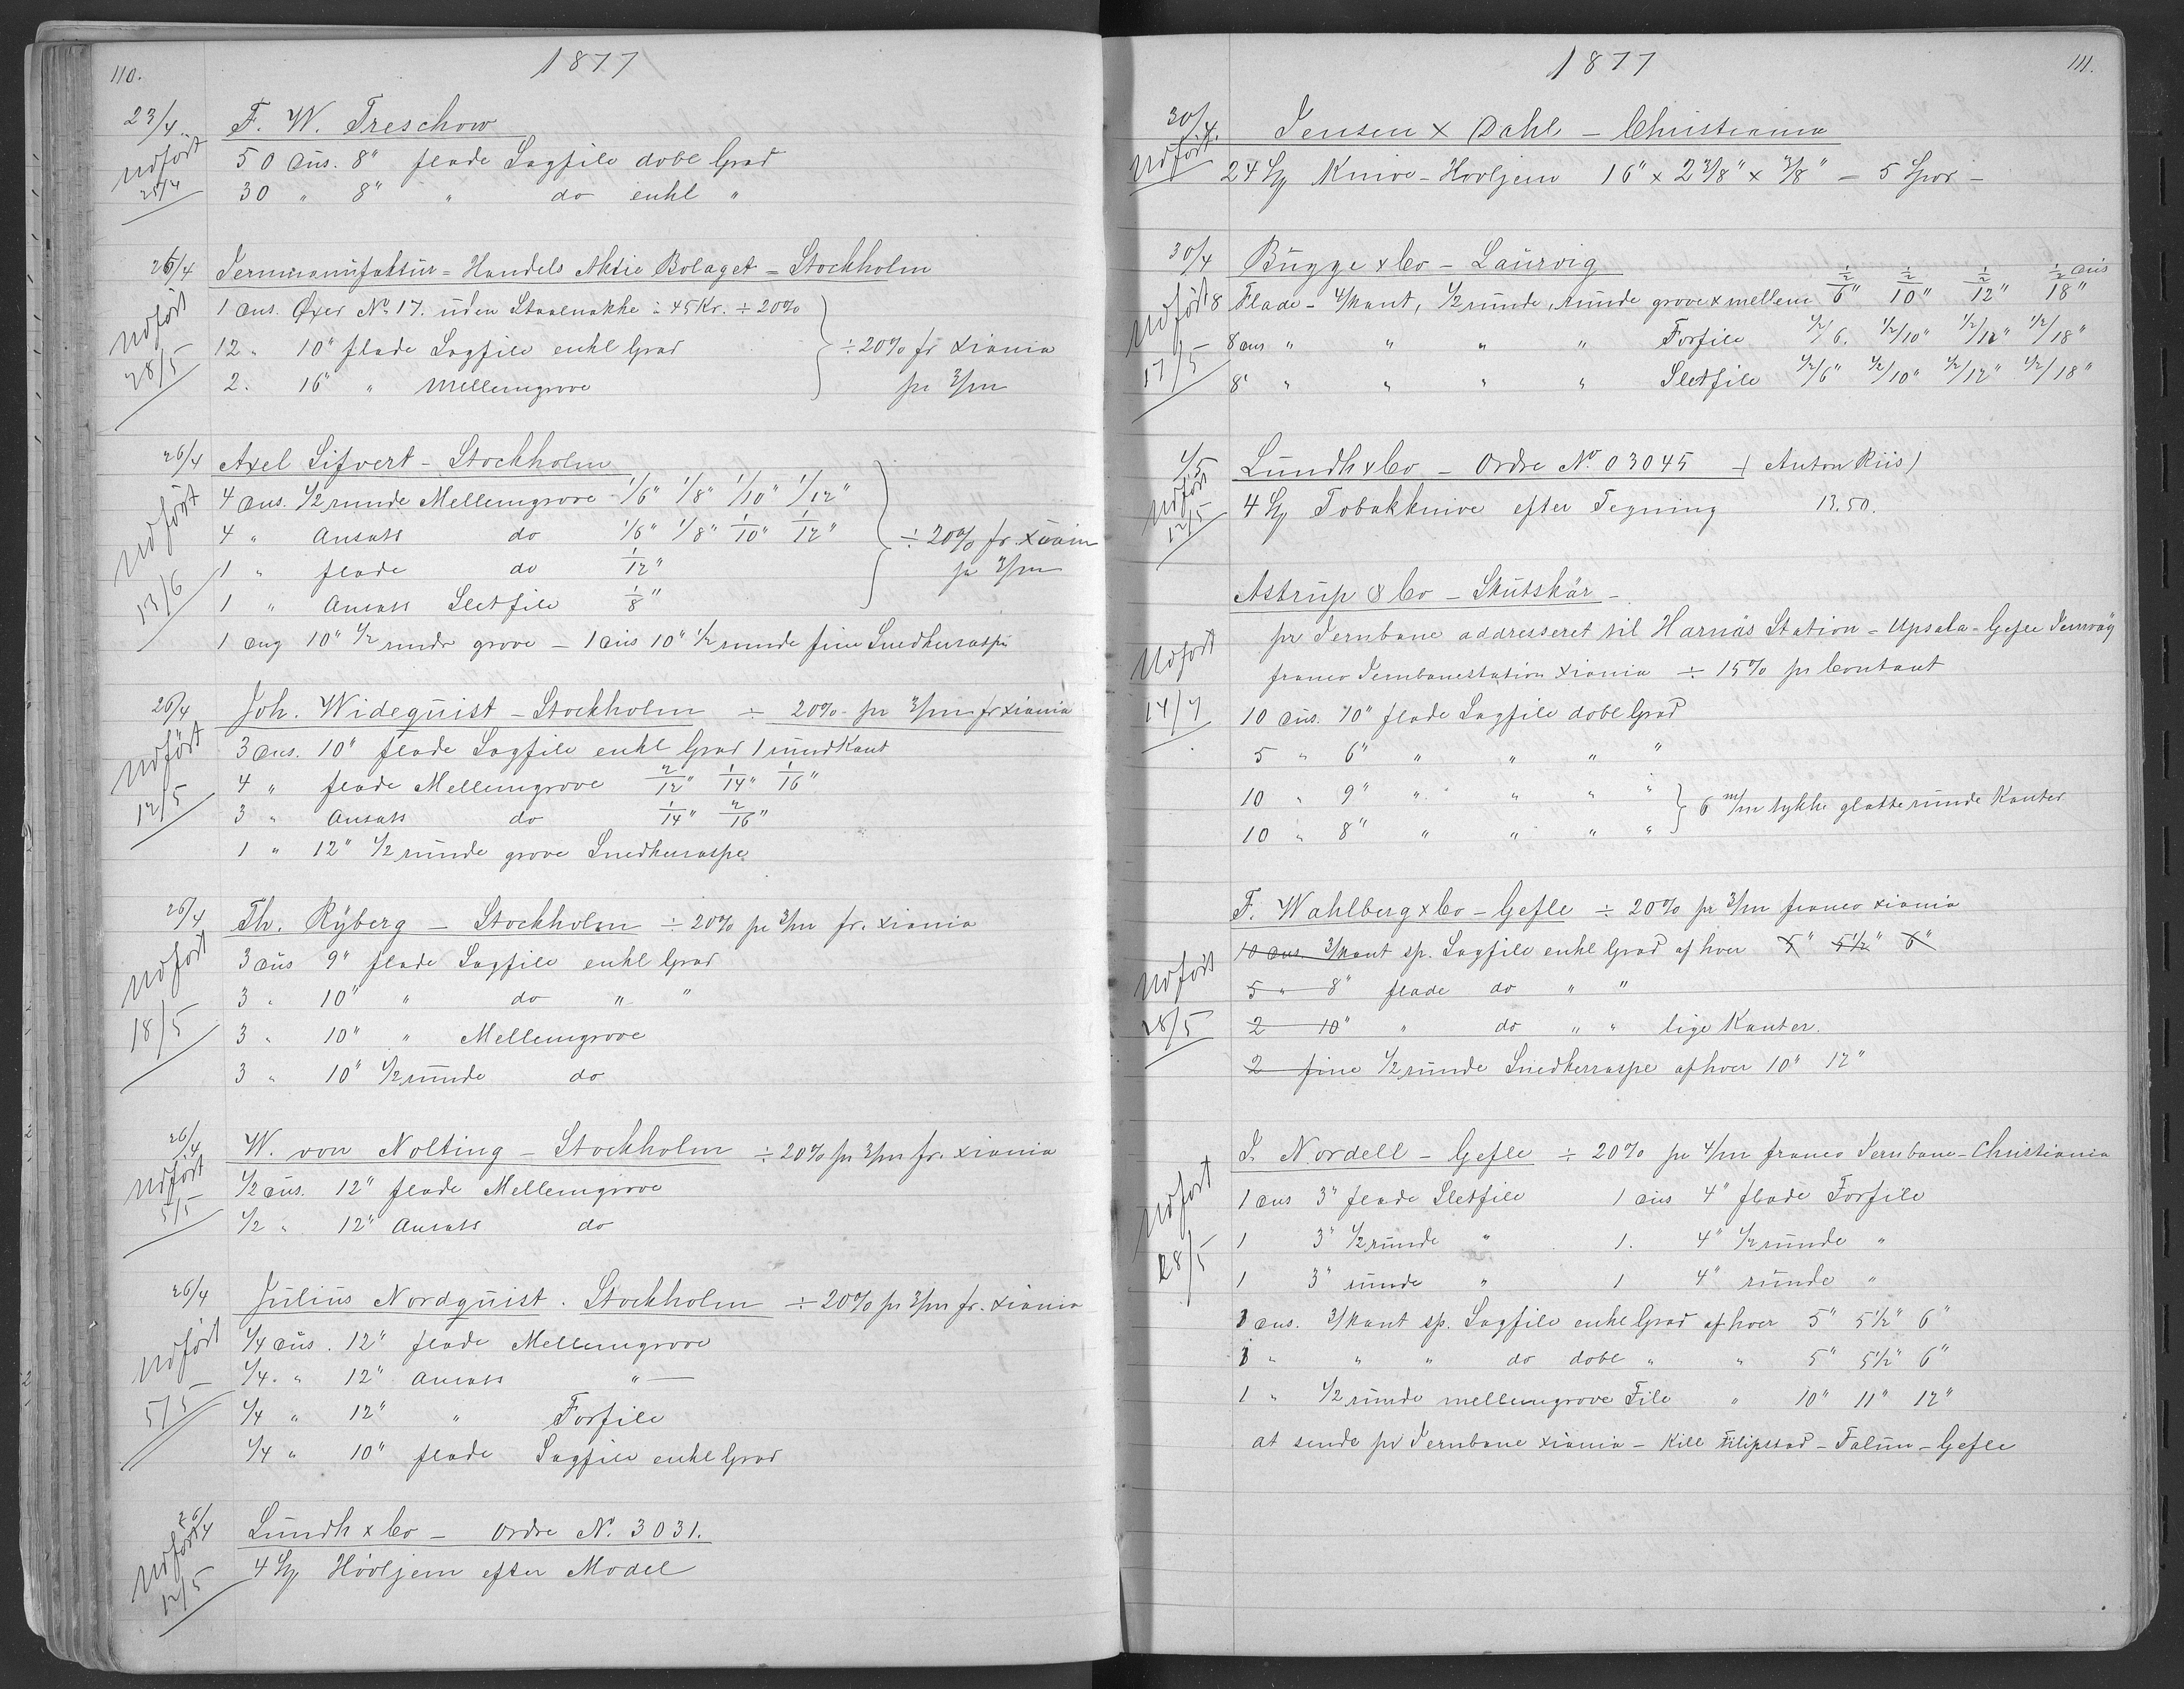 110.
1877
23/4
F. W. Treschow
Udført 25/4
50 Dus. 8" flade Sagfile dobl Grad
30 " 8" " do enkl "
25/4
Jernmanufaktur-Handels Aktie Bolaget - Stockholm
Udført 28/5
1 Dus. Øxer No 17. uden Staalnakke à 45 Kr. ÷ 20%
12 " 10" flade Sagfile enkl Grad ÷ 20% fr Xiania
2. 16" " Mellemgrove pr 3/m
26/4
Axel Sifvert - Stockholm
Udført 13/6
4 Dus. 1/2 runde Mellemgrove 1/6" 1/8" 1/10" 1/12"
4 " Ansats do 1/6" 1/8" 1/10" 1/12" ÷ 20% fr. Xiania
1 " flade do 1/12" pr 3/m
1 " Ansats Sletfile 1/8"
1 Dus 10" 1/2 runde grove - 1 Dus 10" 1/2 runde fine Snedkerraspe
26/4
Joh. Widequist - Stockholm ÷ 20% pr 3/m fr Xiania
Udført 12/5
3 Dus. 10" flade Sagfile enkl Grad 1 rund Kant
4 " flade Mellemgrove 2/12" 1/14" 1/16"
3 " Ansats do 1/14" 2/16"
1 " 12" 1/2 runde grove Snedkerraspe
26/4
Th. Ryberg - Stockholm ÷ 20% pr 3/m fr. Xiania
Udført 18/5
3 Dus 9" flade Sagfile enkl Grad
3 " 10" " do " "
3 " 10" " Mellemgrove
3 " 10" 1/2 runde do
26/4
W. von Nolting - Stockholm ÷ 20% pr 3/m fr. Xiania
Udført 5/5
1/2 Dus. 12" flade Mellemgrove
1/2 " 12" Ansats do
26/4
Julius Nordquist. Stockholm ÷ 20% pr 3/m fr. Xiania
Udført 5/5
1/4 Dus. 12" flade Mellemgrove
1/4 " 12" Ansats " —
1/4 " 12" " Forfile
1/4 " 10" flade Sagfile enkl Grad
26/4
Lundh & Co - Ordre No. 3031.
Udført 12/5
4 Stk Høvljern efter Model
111.
1877
30/4.
Jensen & Dahl - Christiania
Udført
24 Stk Knive-Høvljern 16" x 2 3/8" x 3/8" = 5 Spor -
30/4
Bugge & Co - Laurvig
Udført 17/5
8 Flade - 4/kant, 1/2 runde, runde grove & mellem 1/2/6" 1/2/10" 1/2/12" 1/2/18" Dus
8 Dus " " " " Forfile 1/2/6. 1/2/10" 1/2/12" 1/2/18"
8 " " " " " Sletfile 1/2/6" 1/2/10" 1/2/12" 1/2/18"
4/5
Lundh & Co - Ordre No. 03045 - (Anton Riis)
Udført 12/5
4 Stk Tobakknive efter Tegning 13.50.
Astrup & Co - Skutskär -
pr Jernbane addresseret til Harnäs Station - Upsala-Gefle Jernväg
Udført 14/7
franco Jernbanestation Xiania ÷ 15% pr Contant
10 Dus. 10" flade Sagfile dobl Grad
5 " 6" " " " "
10 " 9" " " " " 6 m/m tykke glatte runde Kanter
10 " 8" " " " "
F. Wahlberg & Co - Gefle ÷ 20% pr 3/m franco Xiania
Udført 28/5
10 Dus. 3/kant sp. Sagfile enkl Grad af hver 5" 5 1/2" 6"
5 " 8" flade do " "
2 10" " do " " lige Kanter.
2 fine 1/2 runde Snedkerraspe af hver 10" 12"
J. Nordell - Gefle ÷ 20% pr 4/m franco Jernbane-Christiania
Udført 28/5
1 Dus 3" flade Sletfile 1 Dus 4" flade Forfile
1 3" 1/2 runde " 1. 4" 1/2 runde "
1 3" runde " 1 4" runde "
1 Dus. 3/kant sp. Sagfile enkl Grad af hver 5" 5 1/2" 6"
1 " " " do dobl " " 5" 5 1/2" 6"
1 " 1/2 runde mellemgrove File " 10" 11" 12"
at sende pr Jernbane Xiania - Kill Filipstad - Falun - Gefle